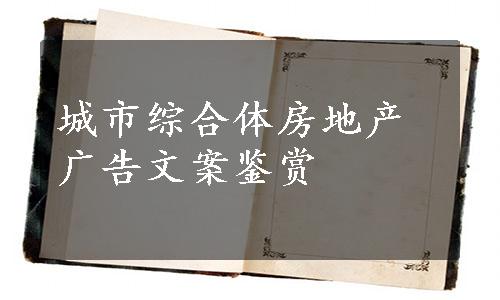 城市综合体房地产
广告文案鉴赏